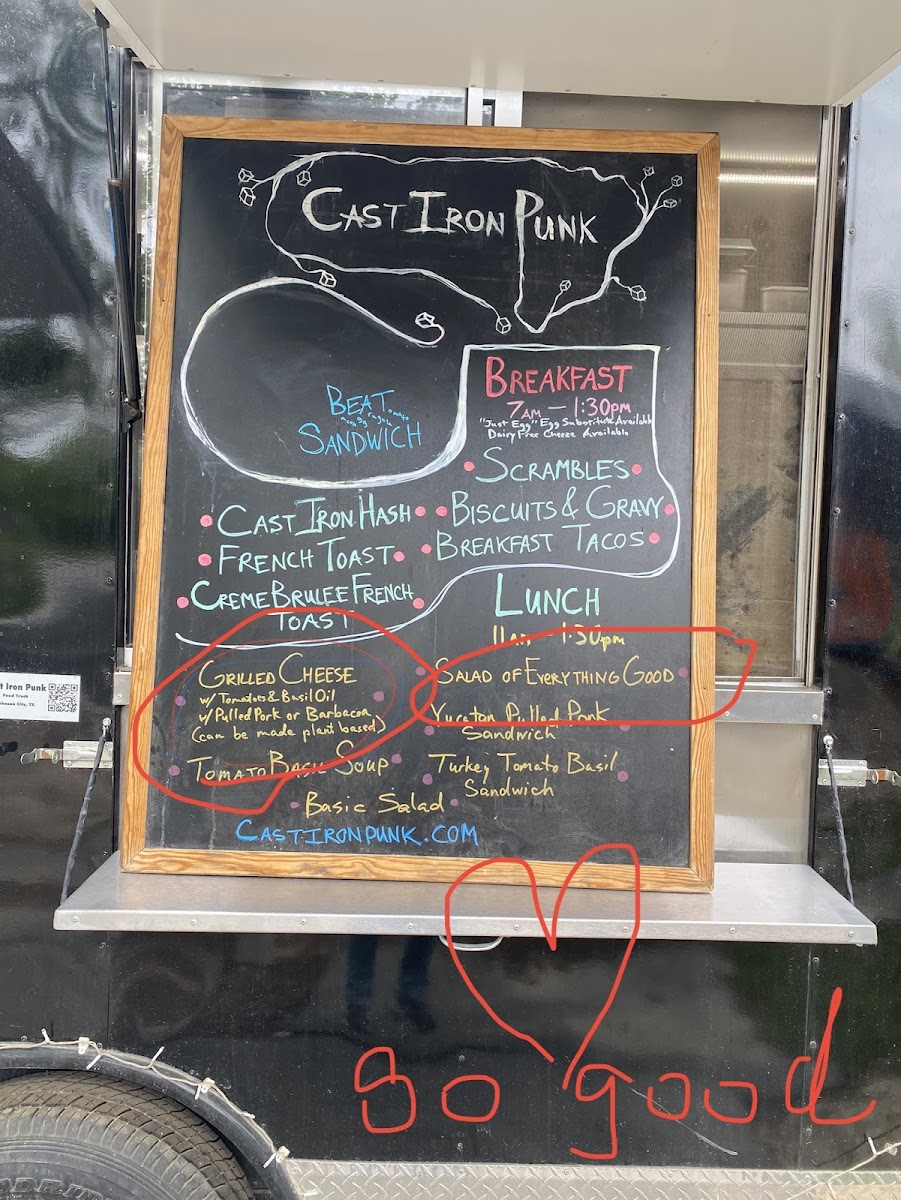 CAST IRON PUNK
BREAKFAST
7AM — 1:30PM
"Just Egg" Egg Substitute Available
Dairy Free Cheeze Available
BEAT
SANDWICH
SCRAMBLES
CAST IRON HASH
BISCUITS & GRAVY
FRENCH TOAST
BREAKFAST TACOS
CREME BRULEE FRENCH
TOAST
LUNCH
11AM - 1:30pm
GRILLED CHEESE
w/ Tomatoes & Basil Oil
w/ Pulled Pork or Barbacoa
(can be made plant based)
SALAD OF EVERYTHING GOOD
Yucatan Pulled Pork
Sandwich
TOMATO BASIL SOUP
Turkey Tomato Basil
Sandwich
Basic Salad
CASTIRONPUNK.COM
t Iron Punk
Food Truck
City, TX
so good